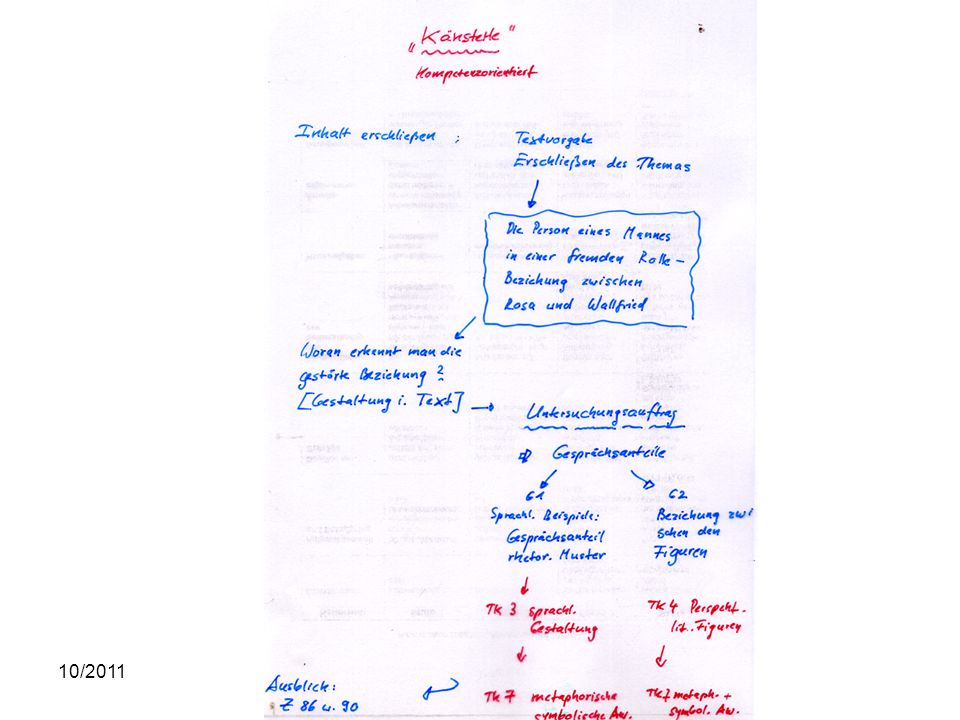 „Känsterle"
Kompetenzorientiert
Inhalt erschließen :
Textvorgabe
Erschließen des Themas
Die Person eines Mannes
in einer fremden Rolle –
Beziehung zwischen
Rosa und Wallfried
Woran erkennt man die
gestörte Beziehung ?
[Gestaltung i. Text] →
Untersuchungsauftrag
Gesprächsanteile
G1
Sprachl. Beispiele:
Gesprächsanteil
rhetor. Muster
G2
Beziehung zwi
schen den
Figuren
TK 3 sprachl.
Gestaltung
TK 4 Perspekt.
lit. Figuren
TK 7 metaphorische
symbolische Aw.
TK 7 metaph. +
symbol. Aw.
Ausblick:
Z 86 u. 90
10/2011